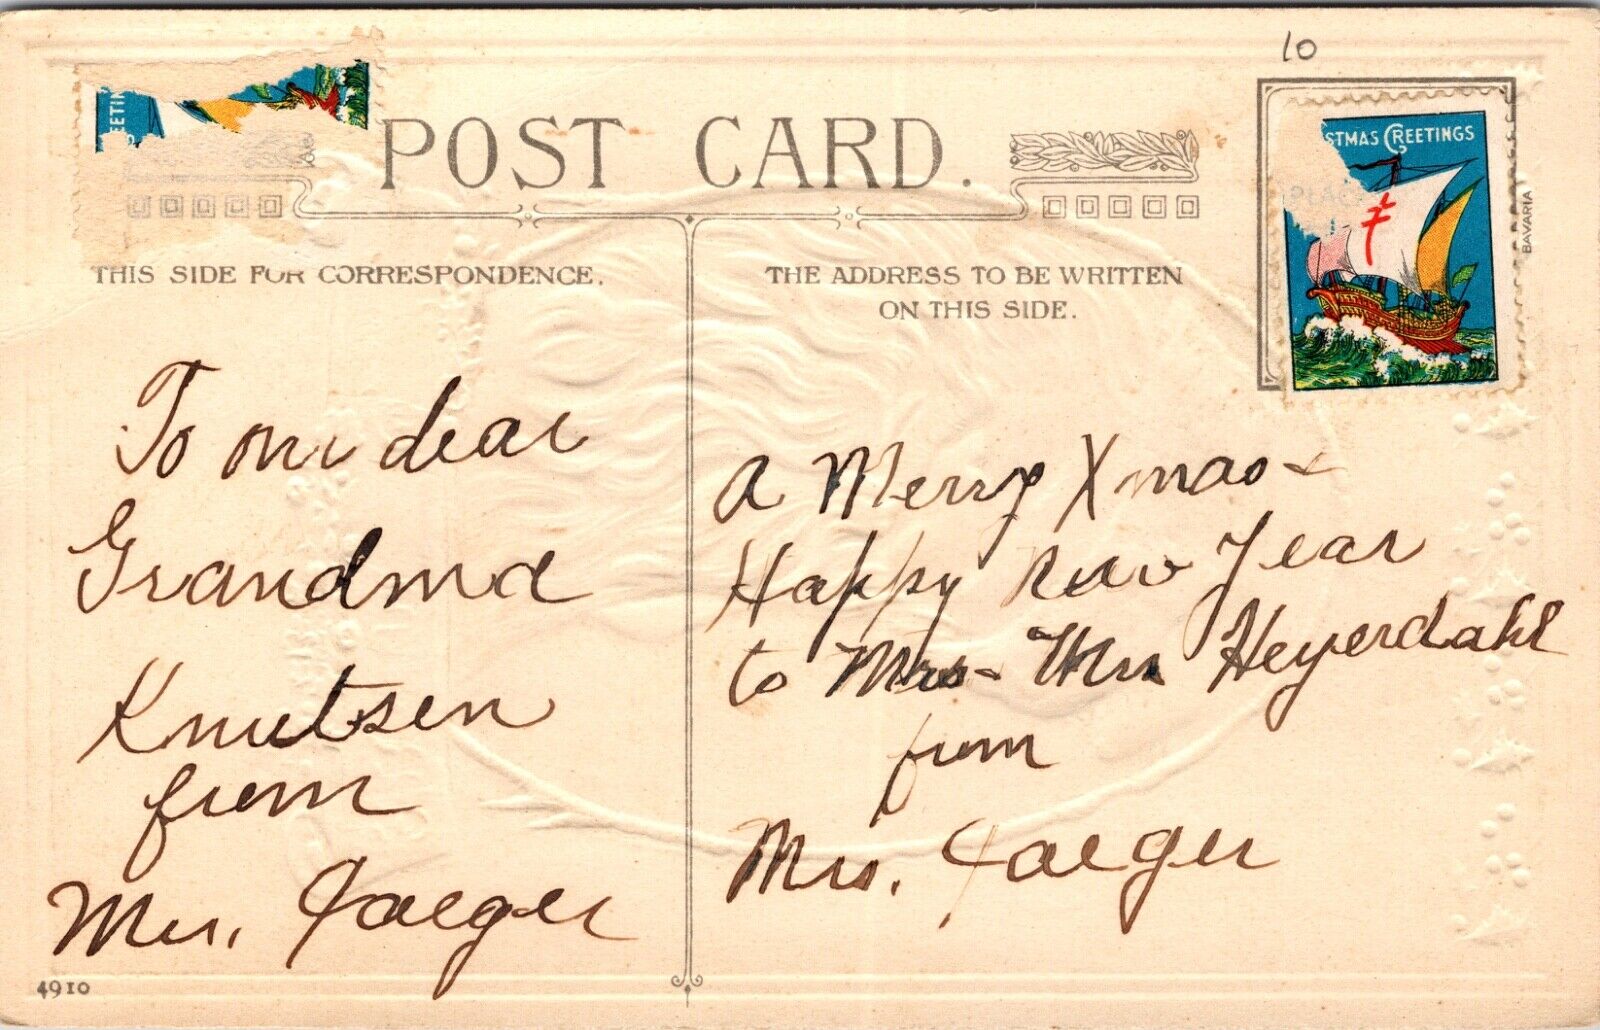 10
EETIN
POST CARD.
STMAS GREETINGS
PLAC
BAVARIA
THIS SIDE FOR CORRESPONDENCE.
THE ADDRESS TO BE WRITTEN
ON THIS SIDE.
To our dear
Grandma
Knutsen
from
Mrs. Jaeger
A Merry Xmas &
Happy New Year
to Mrs & Mrs Heyerdahl
from
Mrs. Jaeger
4910